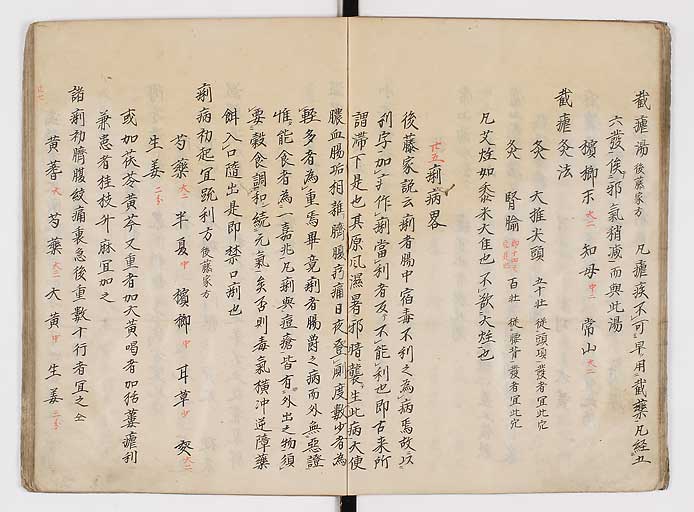 截瘧湯 後藤家方 凡瘧疾不可早用截藥凡經五
六發俟邪氣稍減而與此湯
檳榔 大二 知母 中二 常山 大二
截瘧灸法
灸 大推尖頭 五十壯 從頭項發者宜此穴
灸 腎腧 百壯 從腰背發者宜此穴
凡艾炷如黍米大隹也不欲大炷也
廿五 痢病畧
後藤家說云痢者腸中宿毒不利之為病焉故以
利字加疒作痢當利者及不能利也即古来所
謂滯下是也其原風濕暑邪暗襲生此病大便
膿血腸垢相雜臍腹㽲痛日夜登厠度數少者為
輕多者為重焉畢竟痢者腸爵之病而外無惡證
惟能食者為一嘉兆凡痢與痘瘡皆有外出之物須
要穀食調和続元氣矣否則毒氣橫沖逆障藥
餌入口隨出是即禁口痢也
痢病初起宜疏利方 後藤家方
芍藥 大二 半夏 中 檳榔 中 耳草 少
生姜 二分
或加茯苓黄芩又重者加大黄喝者加括蔞瘧利
兼患者桂枝升麻宜加之
諸痢初臍腹絞痛裏急後重數十行者宜之
黄蓍 大 芍藥 大二 大黄 中 生姜 二分